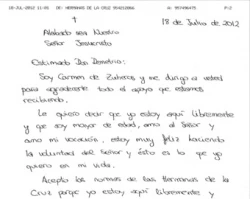 18-JUL-2012 11:05 DE: HERMANAS DE LA CRUZ P:2
†
18 de Julio de 2012
Alabado sea Nuestro
Señor Jesucristo
Estimado Don Demetrio:
Soy Carmen de Zuheros y me dirijo a usted
para agradecerle todo el apoyo que estamos
recibiendo.
Le quiero decir que yo estoy aquí libremente
y que soy mayor de edad, amo al Señor y
amo mi vocación, estoy muy feliz haciendo
la voluntad del Señor y ésto es lo que yo
quiero en mi vida.
Acepto las normas de las Hermanas de la
Cruz porque yo estoy aquí libremente y